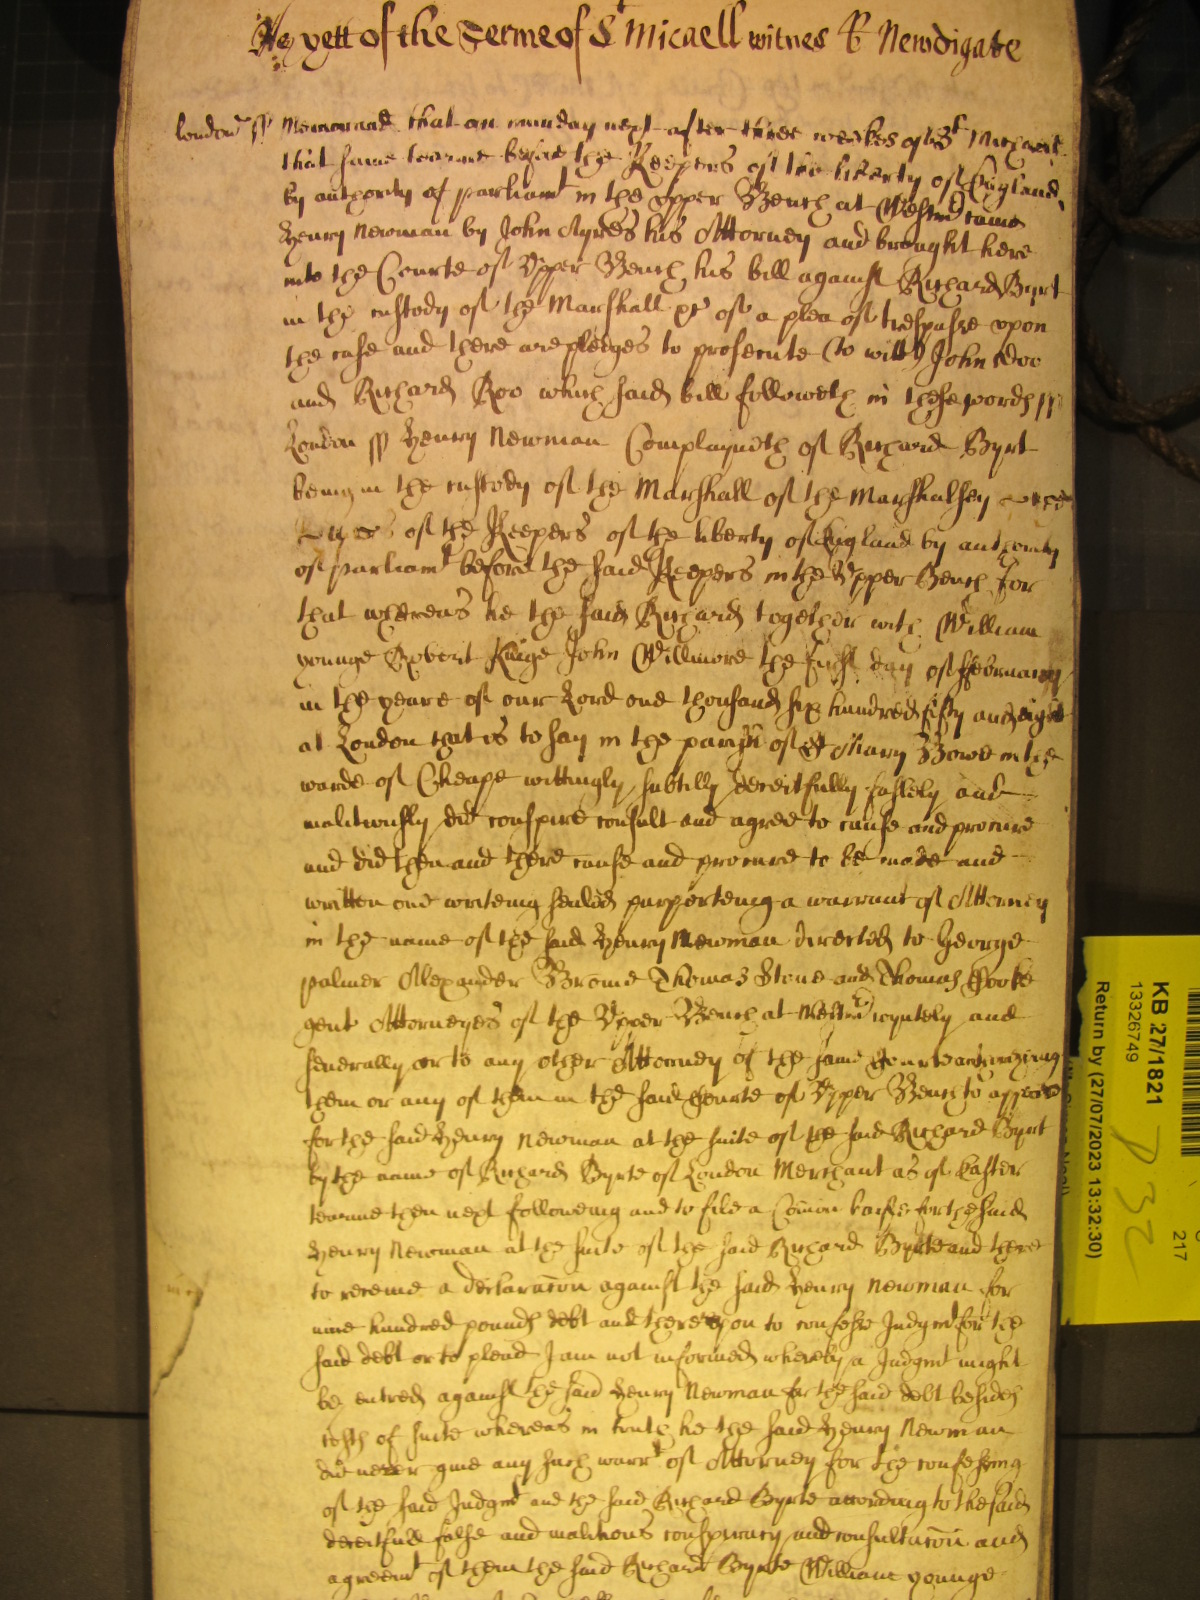 As yett of the Terme of St Micaell witnes R Newdigate
London ss Memorand that on munday next after three weekes of St Michaell
that same tearme before the Keepers of the liberty of England
by authority of parliamt in the Vpper Bench at Westmr came
Henry Newman by John Ayres his Attorney and brought here
into the Courte of Vpper Bench his bill against Richard Byrt
in the custody of the Marshall &c of a plea of trespasse vpon
the case and there are pledges to prosecute (to witt) John Doo
and Richard Roo which said bill followeth in these words ss
London ss Henry Newman Complayneth of Richard Byrt
being in the custody of the Marshall of the Marshalsey
of the Keepers of the liberty of England by authority
of parliamt before the said Keepers in the Vpper Bench for
that whereas he the said Richard together with William
younge Robert Kinge John Willmore the first day of February
in the yeare of our Lord one thousand six hundred fifty and eight
at London that is to say in the parish of St Mary Bowe in the
warde of Cheape wittingly subtilly deceitfully falsely and
malitiously did conspire consult and agree to cause and procure
and did then and there cause and procure to be made and
written one writeing sealed purporteing a warrant of Attorney
in the name of the said Henry Newman directed to George
palmer Alexander Brome Thomas Stone and Thomas Cooke
gent Attorneyes of the Vpper Bench at Westmr ioyntely and
severally or to any other Attorney of the same Courte authorizing
them or any of them in the said Courte of Vpper Bench to appeare
for the said Henry Newman at the suite of the said Richard Byrt
by the name of Richard Byrte of London Merchant as of Easter
tearme then next following and to file a Comon baile for the said
Henry Newman at the suite of the said Richard Byrte and there
to receive a declaracon against the said Henry Newman for
nine hundred pounds debt and therevpon to confesse Judgmt for the
said debt or to plead I am not informed whereby a Judgmt might
be entred against the said Henry Newman for the said debt besides
costs of suite whereas in truth he the said Henry Newman
did never give any such warrt of Attorney for the confessing
of the said Judgmt and the said Richard Byrte according to the said
deceitfull false and malitious conspiracy and consultacon and
agreemt of them the said Richard Byrte William younge
KB 27/1821
13326749
Return by (27/07/2023 13:32:30)
217
D 32